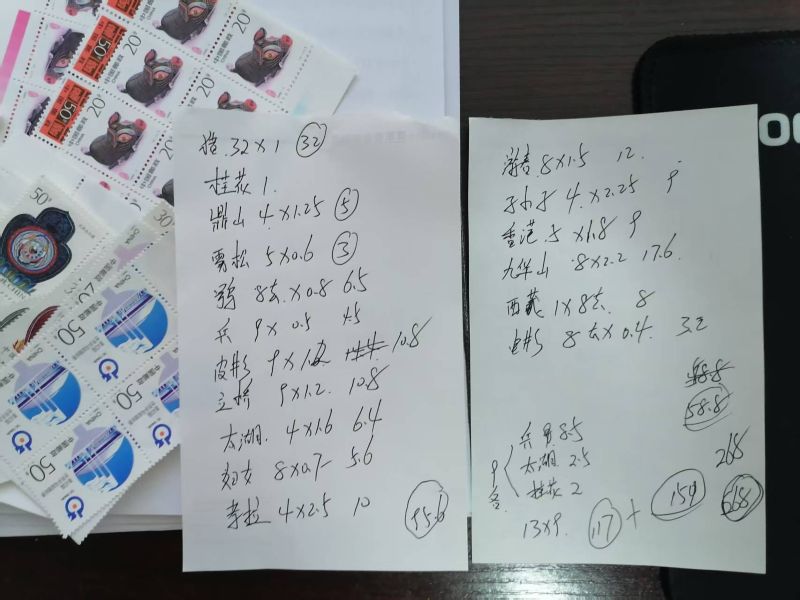 20
50
20
20
20
50
20
中国邮政
CHINA
50分
30
50
50
50
50
中国邮政
32×1 32
桂花 1.
鼎山 4×1.25 5
雪松 5×0.6 3
8去×0.8 6.5
兵 9×0.5 4.5
皮影 9×1.2 10.8
立桥 9×1.2 10.8
太湖 4×1.6 6.4
妇女 8×0.7 5.6
奇拉 4×2.5 10
95.6
游春 8×1.5 12.
孙小子 4×2.25 9
香港 5×1.8 9
九华山 8×2.2 17.6
西藏 1×8去 8
电影 8去×0.4 3.2
58.8
58.8
268
9各
兵图 8.5
太湖 2.5
桂花 2
13×9. 117 + 154 668